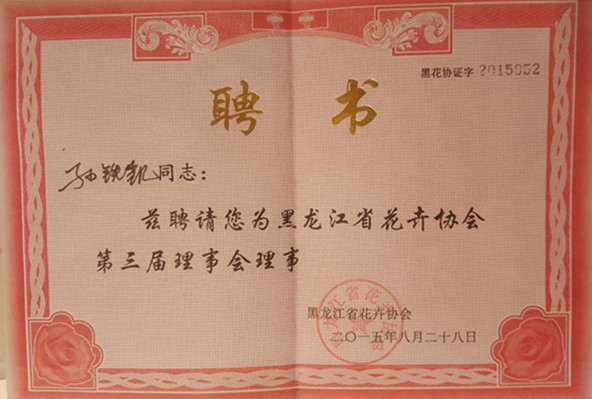 黑花协证字 2015052
聘书
孙铁凯同志:
兹聘请您为黑龙江省花卉协会
第三届理事会理事
黑龙江省花卉协会
二〇一五年八月二十八日